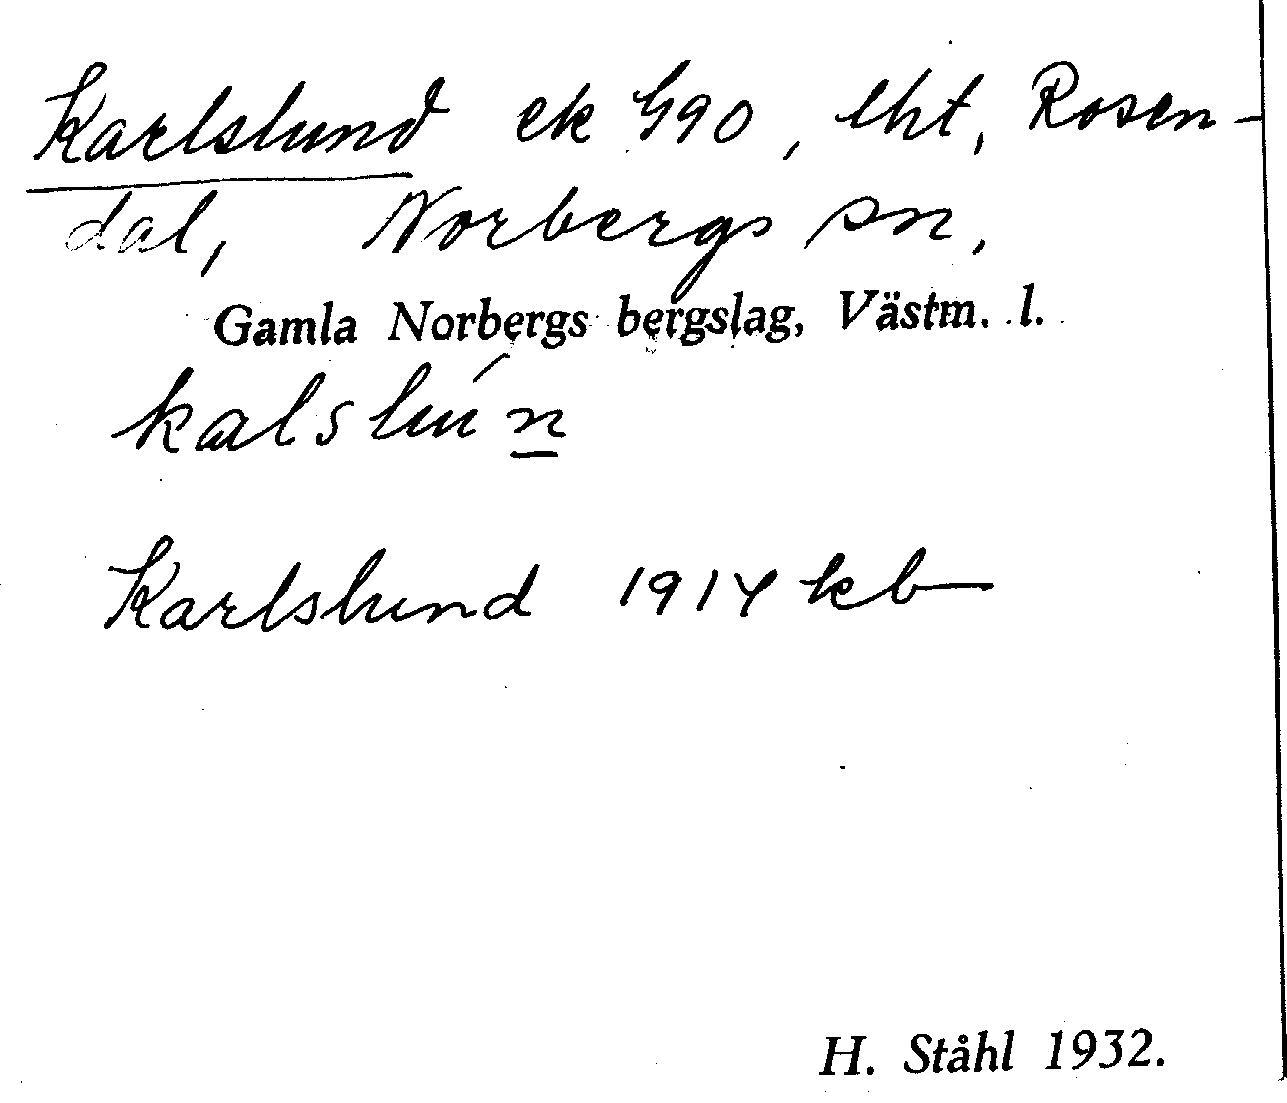 Karlslund ek G90, lht, Rosen-
dal, Norbergs sn,
Gamla Norbergs bergslag, Västm. l.
kalslún
Karlslund 1914 kb
H. Ståhl 1932.